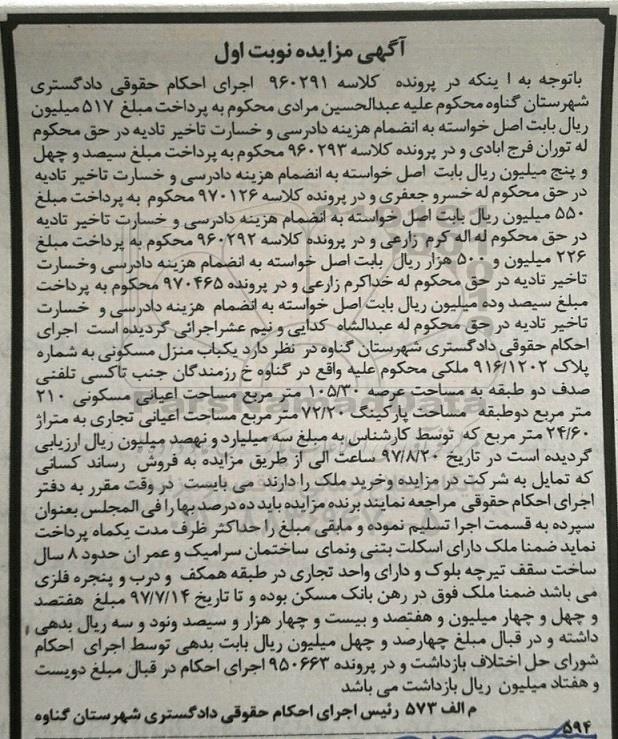 آگهی مزایده نوبت اول
باتوجه به ا ینکه در پرونده کلاسه ۹۶۰۲۹۱ اجرای احکام حقوقی دادگستری
شهرستان گناوه محکوم علیه عبدالحسین مرادی محکوم به پرداخت مبلغ ۵۱۷ میلیون
ریال بابت اصل خواسته به انضمام هزینه دادرسی و خسارت تاخیر تادیه در حق محکوم
له توران فرج ابادی و در پرونده کلاسه ۹۶۰۲۹۳ محکوم به پرداخت مبلغ سیصد و چهل
و پنج میلیون ریال بابت اصل خواسته به انضمام هزینه دادرسی و خسارت تاخیر تادیه
در حق محکوم له خسرو جعفری و در پرونده کلاسه ۹۷۰۱۲۶ محکوم به پرداخت مبلغ
۵۵۰ میلیون ریال بابت اصل خواسته به انضمام هزینه دادرسی و خسارت تاخیر تادیه
در حق محکوم له اله کرم زارعی و در پرونده کلاسه ۹۶۰۲۹۲ محکوم به پرداخت مبلغ
۲۲۶ میلیون و ۵۰۰ هزار ریال بابت اصل خواسته به انضمام هزینه دادرسی وخسارت
تاخیر تادیه در حق محکوم له خداکرم زارعی و در پرونده ۹۷۰۴۶۵ محکوم به پرداخت
مبلغ سیصد وده میلیون ریال بابت اصل خواسته به انضمام هزینه دادرسی و خسارت
تاخیر تادیه در حق محکوم له عبدالشاه کدایی و نیم عشراجرائی گردیده است اجرای
احکام حقوقی دادگستری شهرستان گناوه در نظر دارد یکباب منزل مسکونی به شماره
پلاک ۹۱۶/۱۲۰۲ ملکی محکوم علیه واقع در گناوه خ رزمندگان جنب تاکسی تلفنی
صدف دو طبقه به مساحت عرصه ۱۰۵/۳۰ متر مربع مساحت اعیانی مسکونی ۲۱۰
متر مربع دوطبقه مساحت پارکینگ ۷۲/۲۰ متر مربع مساحت اعیانی تجاری به متراژ
۲۴/۶۰ متر مربع که توسط کارشناس به مبلغ سه میلیارد و نهصد میلیون ریال ارزیابی
گردیده است در تاریخ ۹۷/۸/۲۰ ساعت الی از طریق مزایده به فروش رساند کسانی
که تمایل به شرکت در مزایده وخرید ملک را دارند می بایست در وقت مقرر به دفتر
اجرای احکام حقوقی مراجعه نمایند برنده مزایده باید ده درصد بها را فی المجلس بعنوان
سپرده به قسمت اجرا تسلیم نموده و مابقی مبلغ را حداکثر ظرف مدت یکماه پرداخت
نماید ضمنا ملک دارای اسکلت بتنی ونمای ساختمان سرامیک و عمر ان حدود ۸ سال
ساخت سقف تیرچه بلوک و دارای واحد تجاری در طبقه همکف و درب و پنجره فلزی
می باشد ضمنا ملک فوق در رهن بانک مسکن بوده و تا تاریخ ۹۷/۷/۱۴ مبلغ هفتصد
و چهل و چهار میلیون و هفتصد و بیست و چهار هزار و سیصد ونود و سه ریال بدهی
داشته و در قبال مبلغ چهارصد و چهل میلیون ریال بابت بدهی توسط اجرای احکام
شورای حل اختلاف بازداشت و در پرونده ۹۵۰۶۶۳ اجرای احکام در قبال مبلغ دویست
و هفتاد میلیون ریال بازداشت می باشد
م الف ۵۷۳ رئیس اجرای احکام حقوقی دادگستری شهرستان گناوه
۵۹۴